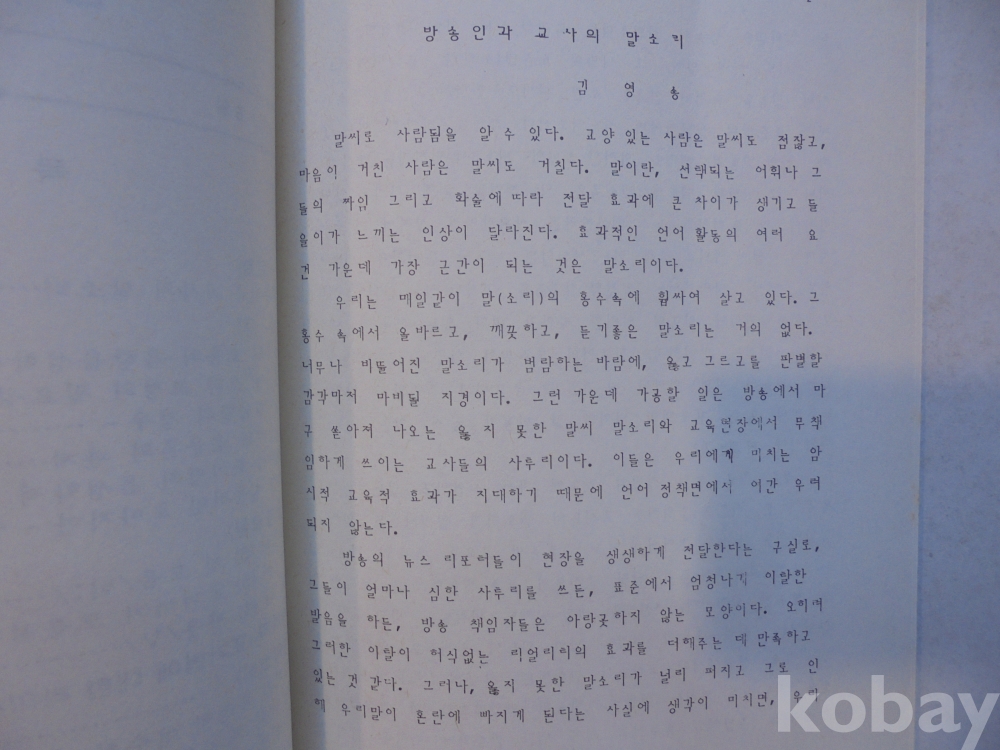 방송인과 교사의 말소리
김 영 송
말씨로 사람됨을 알 수 있다. 교양 있는 사람은 말씨도 점잖고,
마음이 거친 사람은 말씨도 거칠다. 말이란, 선택되는 어휘나 그
들의 짜임 그리고 화술에 따라 전달 효과에 큰 차이가 생기고 듣
을이가 느끼는 인상이 달라진다. 효과적인 언어 활동의 여러 요
건 가운데 가장 근간이 되는 것은 말소리이다.
우리는 매일같이 말(소리)의 홍수속에 휩싸여 살고 있다. 그
홍수 속에서 올바르고, 깨끗하고, 듣기좋은 말소리는 거의 없다.
너무나 비뚤어진 말소리가 범람하는 바람에, 옳고 그르고를 판별할
감각마저 마비될 지경이다. 그런 가운데 가공할 일은 방송에서 마
구 쏟아져 나오는 옳지 못한 말씨 말소리와 교육현장에서 무책
임하게 쓰이는 교사들의 사투리이다. 이들은 우리에게 미치는 암
시적 교육적 효과가 지대하기 때문에 언어 정책면에서 여간 우려
되지 않는다.
방송의 뉴스 리포터들이 현장을 생생하게 전달한다는 구실로,
그들이 얼마나 심한 사투리를 쓰든, 표준에서 엄청나게 이탈한
발음을 하든, 방송 책임자들은 아랑곳하지 않는 모양이다. 오히려
그러한 이탈이 허식없는 리얼리티의 효과를 더해주는 데 만족하고
있는 것 같다. 그러나, 옳지 못한 말소리가 널리 퍼지고 그로 인
해 우리말이 혼란에 빠지게 된다는 사실에 생각이 미치면, 우리
kobay